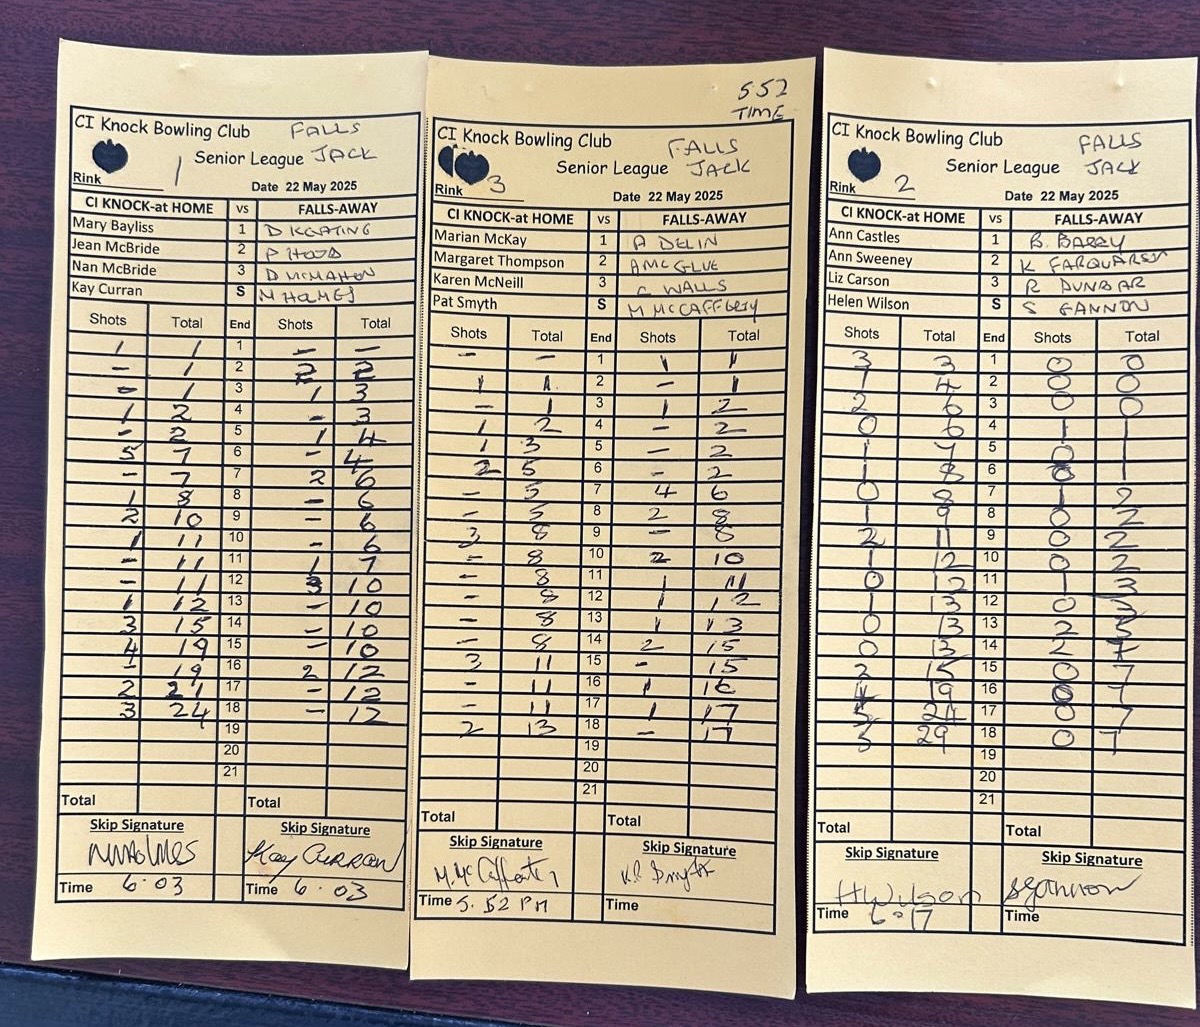 CI Knock Bowling Club FALLS
Senior League JACK
Rink 1 Date 22 May 2025
CI KNOCK-at HOME vs FALLS-AWAY
Mary Bayliss 1 D KEATING
Jean McBride 2 P HOOD
Nan McBride 3 D MCMAHON
Kay Curran S M HOLMES
Shots Total End Shots Total
1 1 1 – –
– 1 2 2 2
0 1 3 1 3
1 2 4 – 3
– 2 5 1 4
5 7 6 – 4
– 7 7 2 6
1 8 8 – 6
2 10 9 – 6
1 11 10 – 6
– 11 11 1 7
– 11 12 3 10
1 12 13 – 10
3 15 14 – 10
4 19 15 – 10
– 19 16 2 12
2 21 17 – 12
3 24 18 – 12
19
20
21
Total Total
Skip Signature Skip Signature
M Holmes Kay CURRAN
Time 6.03 Time 6.03
5 52
TIME
CI Knock Bowling Club FALLS
Senior League JACK
Rink 3 Date 22 May 2025
CI KNOCK-at HOME vs FALLS-AWAY
Marian McKay 1 A DELIN
Margaret Thompson 2 A MCGLUE
Karen McNeill 3 C WALLS
Pat Smyth S M MCCAFFERTY
Shots Total End Shots Total
– – 1 1 1
1 1 2 – 1
– 1 3 1 2
1 2 4 – 2
1 3 5 – 2
2 5 6 – 2
– 5 7 4 6
– 5 8 2 8
3 8 9 – 8
– 8 10 2 10
– 8 11 1 11
– 8 12 1 12
– 8 13 1 13
– 8 14 2 15
3 11 15 – 15
– 11 16 1 16
– 11 17 1 17
2 13 18 – 17
19
20
21
Total Total
Skip Signature Skip Signature
M. McCafferty Smyth
Time 5.52 PM Time
CI Knock Bowling Club FALLS
Senior League JACK
Rink 2 Date 22 May 2025
CI KNOCK-at HOME vs FALLS-AWAY
Ann Castles 1 B. BARRY
Ann Sweeney 2 K FARQUARSON
Liz Carson 3 R DUNBAR
Helen Wilson S S GANNON
Shots Total End Shots Total
3 3 1 0 0
1 4 2 0 0
2 6 3 0 0
0 6 4 1 1
1 7 5 0 1
1 8 6 0 1
0 8 7 1 2
1 9 8 0 2
2 11 9 0 2
1 12 10 0 2
0 12 11 1 3
1 13 12 0 3
0 13 13 2 5
0 13 14 2 7
2 15 15 0 7
4 19 16 0 7
5 24 17 0 7
5 29 18 0 7
19
20
21
Total Total
Skip Signature Skip Signature
HWilson SGannon
Time 6:17 Time